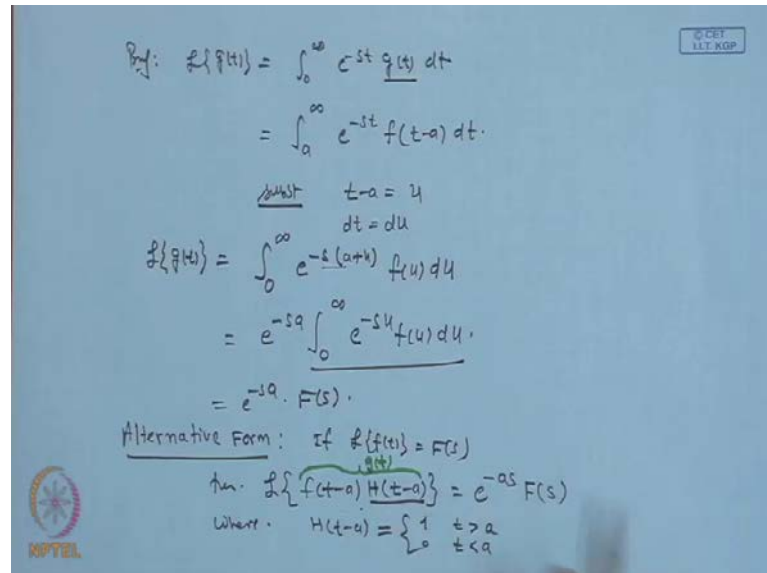 © CET
I.I.T. KGP
Prf: ℒ{g(t)} = ∫₀^∞ e^{-st} g(t) dt
= ∫ₐ^∞ e^{-st} f(t-a) dt.
subst t-a = u
dt = du
ℒ{g(t)} = ∫₀^∞ e^{-s(a+u)} f(u) du
= e^{-sa} ∫₀^∞ e^{-su} f(u) du.
= e^{-sa}. F(s).
Alternative Form: If ℒ{f(t)} = F(s)
g(t)
then. ℒ{f(t-a) H(t-a)} = e^{-as} F(s)
Where. H(t-a) = { 1 t>a
0 t<a
NPTEL